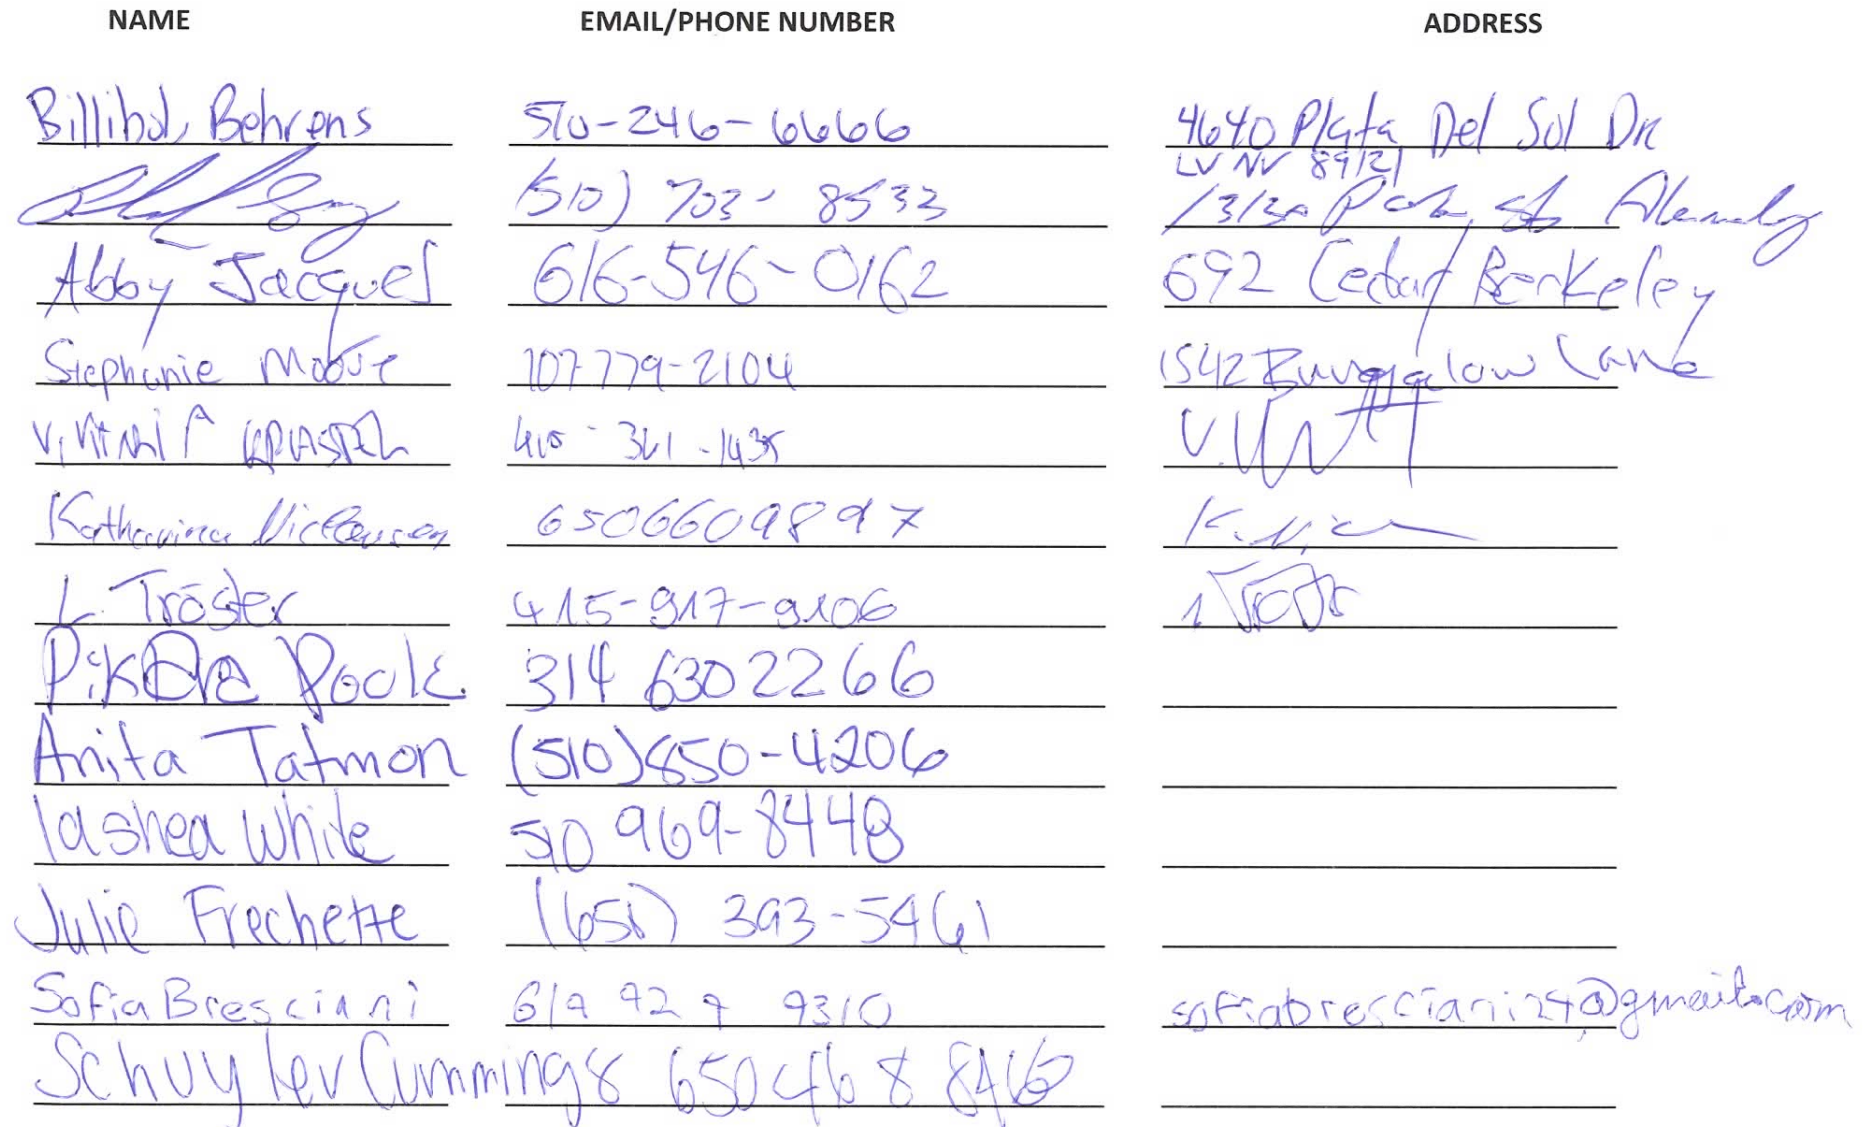 NAME EMAIL/PHONE NUMBER ADDRESS
Behrens 510-246-6666 4640 Plata Del Sol Dr
LV NV 89121
(510) 703-8533 Park St Alameda
Abby Jacques 616-546-0162 692 Cedar Berkeley
Stephanie Moore 707-779-2104 1542 Bungalow Lane
415-341-1435
Katharina 6506609897
L. Tröster 415-917-9106
Poole 314 630 2266
Anita Tatmon (510) 850-4206
lashea White 510 969-8448
Julie Frechette 393-5461
Sofia Bresciani 619 929 9310 sofiabresciani24@gmail.com
Schuyler Cummings 650 468 8466